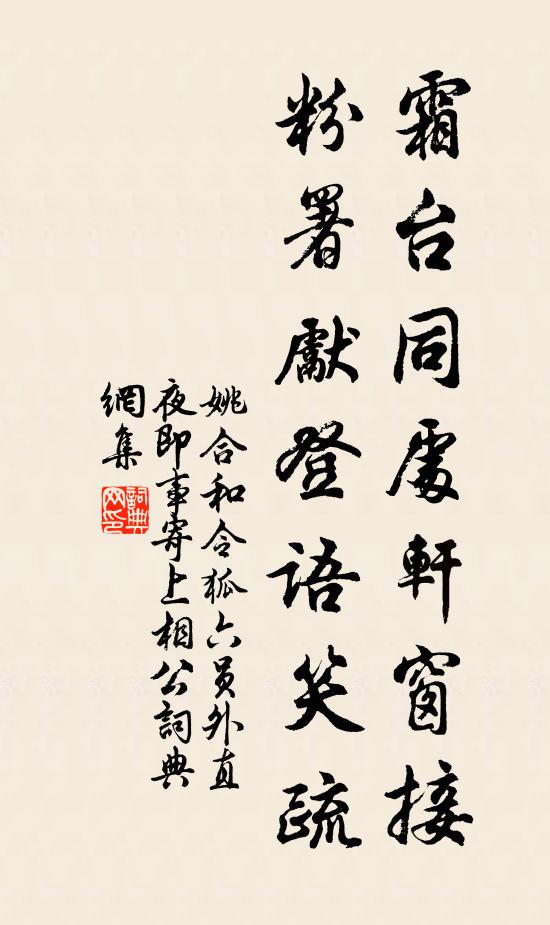 霜台同處軒窗接
粉署獻登語笑疏
姚合和令狐六員外直
夜即事寄上相公詞典
網集
詞典網印